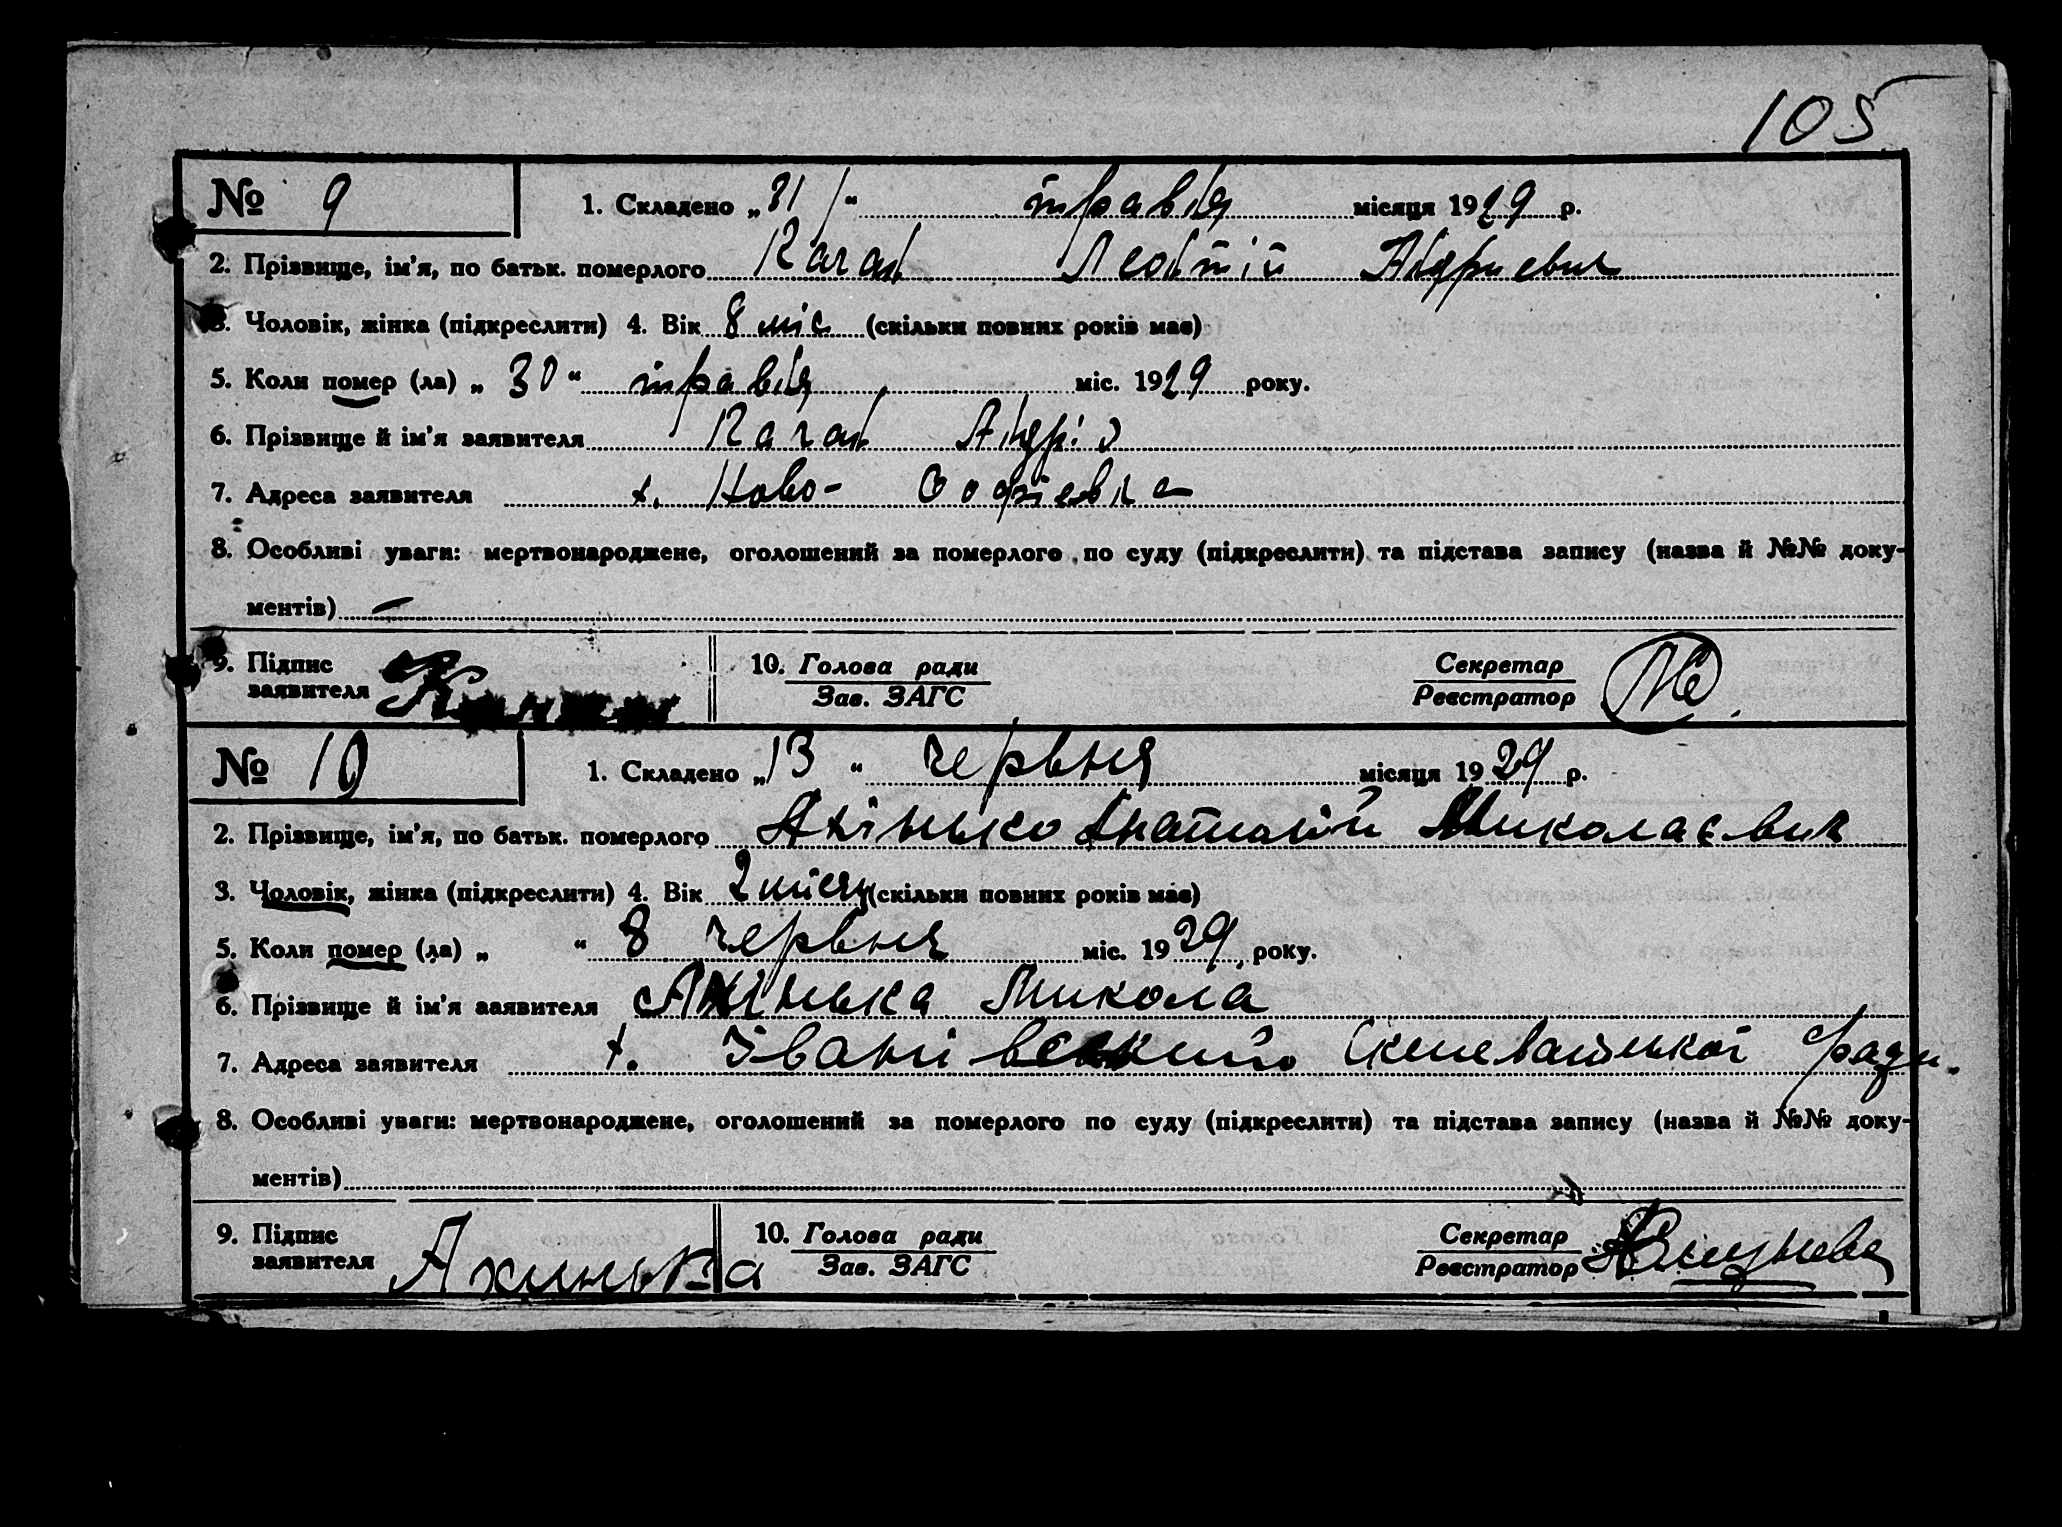 105
№ 9 1. Складено „31“ травня місяця 1929 р.
2. Прізвище, ім'я, по батьк. померлого Качан Леонтій Андриевич
3. Чоловік, жінка (підкреслити) 4. Вік 8 міс (скільки повних років має)
5. Коли помер (ла) „30“ травня міс. 1929 року.
6. Прізвище й ім'я заявителя Качан Андрій
7. Адреса заявителя х. Ново-Софієвка
8. Особливі уваги: мертвонароджене, оголошений за померлого по суду (підкреслити) та підстава запису (назва й №№ доку-
ментів) —
9. Підпис заявителя 10. Голова ради Зав. ЗАГС Секретар Реєстратор
№ 10 1. Складено „13“ червня місяця 1929 р.
2. Прізвище, ім'я, по батьк. померлого Анатолій Миколаєвич
3. Чоловік, жінка (підкреслити) 4. Вік 2 місяц (скільки повних років має)
5. Коли помер (ла) „ “ 8 червня міс. 1929 року.
6. Прізвище й ім'я заявителя Микола
7. Адреса заявителя х. Іванівський ради.
8. Особливі уваги: мертвонароджене, оголошений за померлого по суду (підкреслити) та підстава запису (назва й №№ доку-
ментів)
9. Підпис заявителя Ахинька 10. Голова ради Зав. ЗАГС Секретар Реєстратор